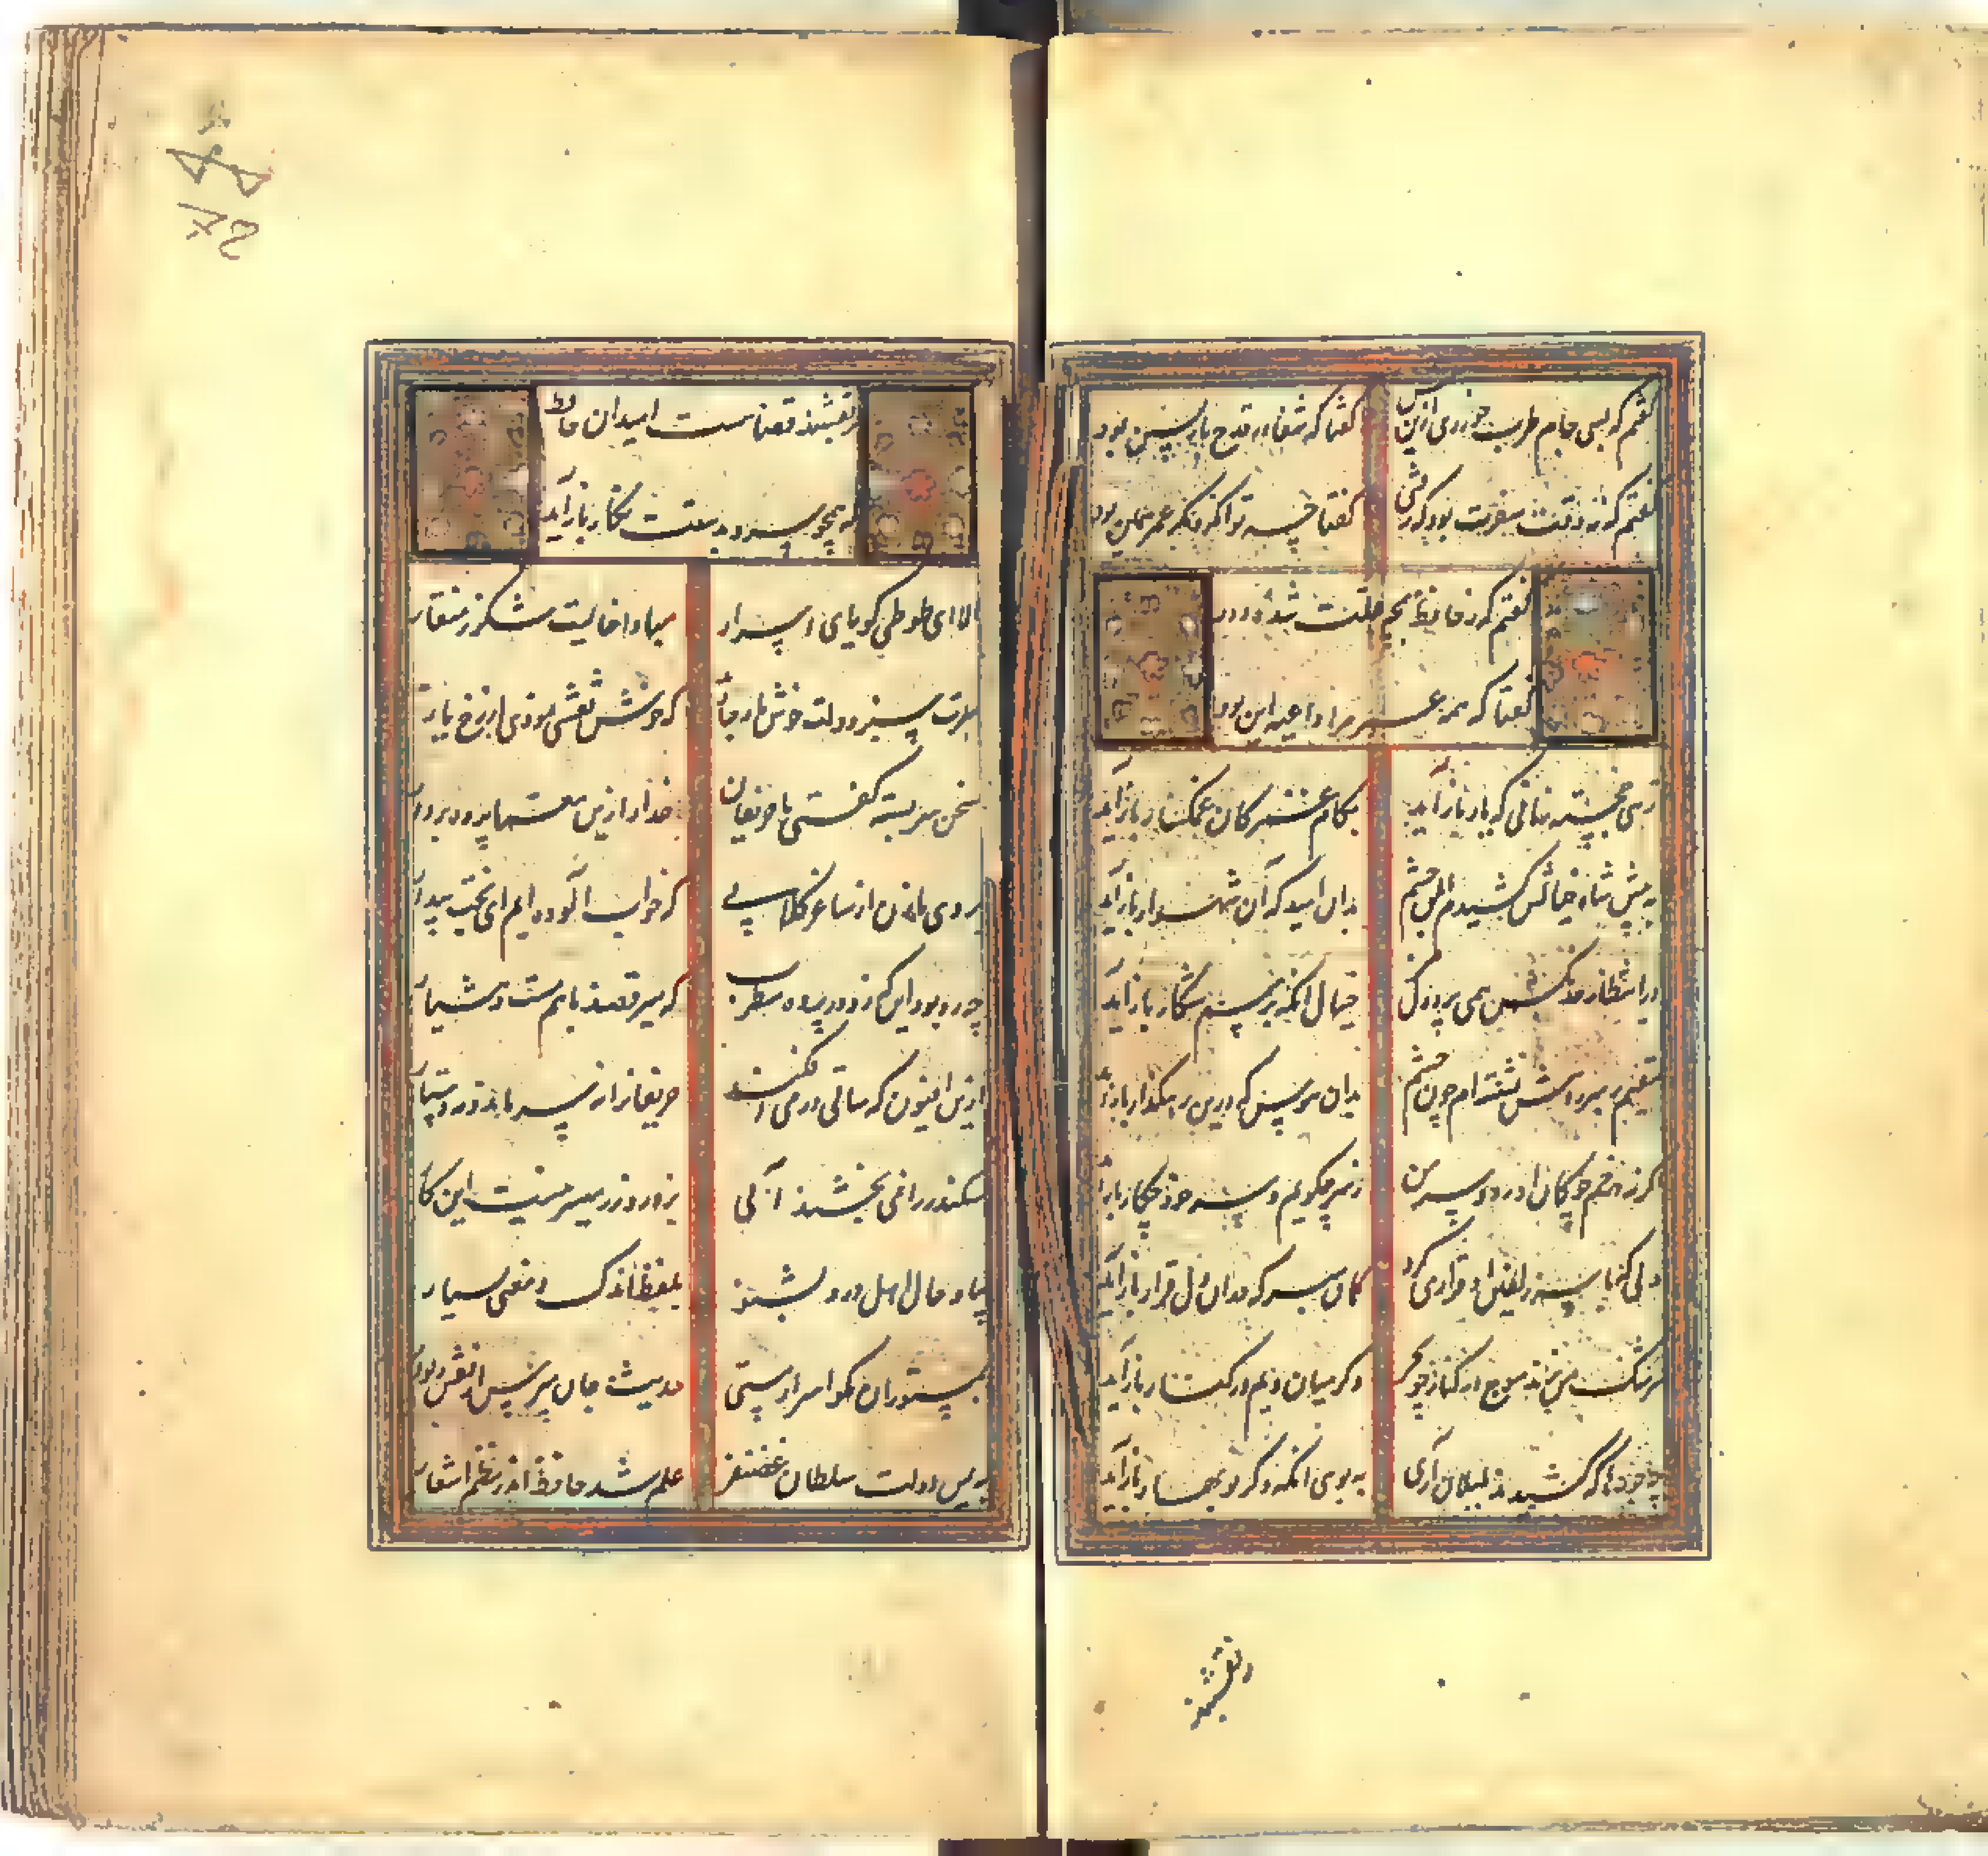 گفتم که بسی جام طرب خوردی ازین پس گفتا که شفا در قدح باز پسین بود
گفتم که نه وقت سفرت بود که رفتی گفتا چه توان کرد مگر عمر همین بود
گفتم که ز حافظ بچه علت شدهٔ دور
گفتا که همه عمر مرا داعیه این بود
زهی خجسته زمانی که یار باز آید بکام غمزدگان غمگسار باز آید
به پیش شاه خیالش کشیدم ابلق چشم بدان امید که آن شهسوار باز آید
در انتظار خدنگش همی پرد دل خیال آنکه برسم شکار باز آید
مقیم بر سر راهش نشسته ام چون چشم بدان هوس که درین رهگذار باز آ
اگر نه در خم چوکان او رود سر من ز سر چکویم و سر خود چکار باز آ
دلی که با سر زلفین او قراری کرد کمان مبر که بدان دل قرار باز آید
سرشک من نزند موج در کنار چو بحر اکر میان ویم در کنار باز آید
چه جورها که کشیدند بلبلان از دی به بوی آنکه دکر نوبهار باز آید
ز نقشبند قضا هست امید آن حافظ
که همچو سرو بدستت نکار باز آید
الا ای طوطی کویای اسرار مبادا خالیت شکر ز منقار
سرت سبز و دلت خوش باد جاوید که خوش نقشی نمودی از رخ یار
سخن سربسته کفتی با حریفان خدا را زین معما پرده بردار
بروی ما زن از ساغر کلابی که خواب آلوده ایم ای بخت بیدار
چه ره بود این که زد در پرده مطرب که میرقصند با هم مست و هشیار
ازین افیون که ساقی در می افکند حریفانرا نه سر ماند و نه دستار
سکندر را نمی بخشند آبی بزور و زر میسر نیست این کار
بیا و حال اهل درد بشنو بلفظ اندک و معنی بسیار
بمستوران مکو اسرار مستی حدیث جان مپرس از نقش دیوار
به یمن دولت سلطان غضنفر علم شد حافظ اندر نظم اشعار
ز نقشبند